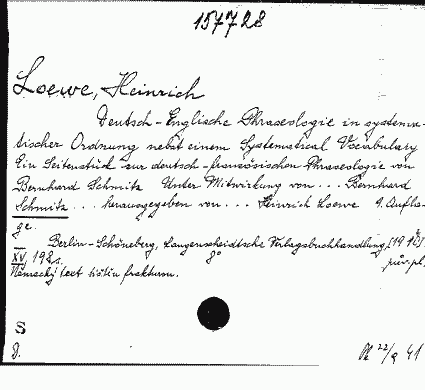 157728
Loewe, Heinrich
Deutsch-Englische Phraseologie in systema-
tischer Ordnung nebst einem Systematical Vocabulary
Ein Seitenstück zur deutsch-französischen Phraseologie von
Bernhard Schmitz Unter Mitwirkung von ... Bernhard
Schmitz ... herausgegeben von ... Heinrich Loewe 9. Aufla-
ge.
Berlin-Schöneberg, Langenscheidtsche Verlagsbuchhandlung,
XV, 198 s. 8°
Německý text tištěn frakturou.
S
D.
22/9 41